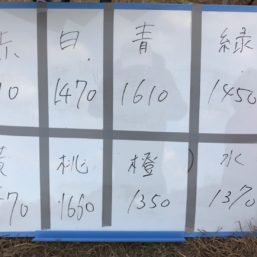 白 青 緑
1470 1610 1450
桃 橙 水
1660 1350 1370